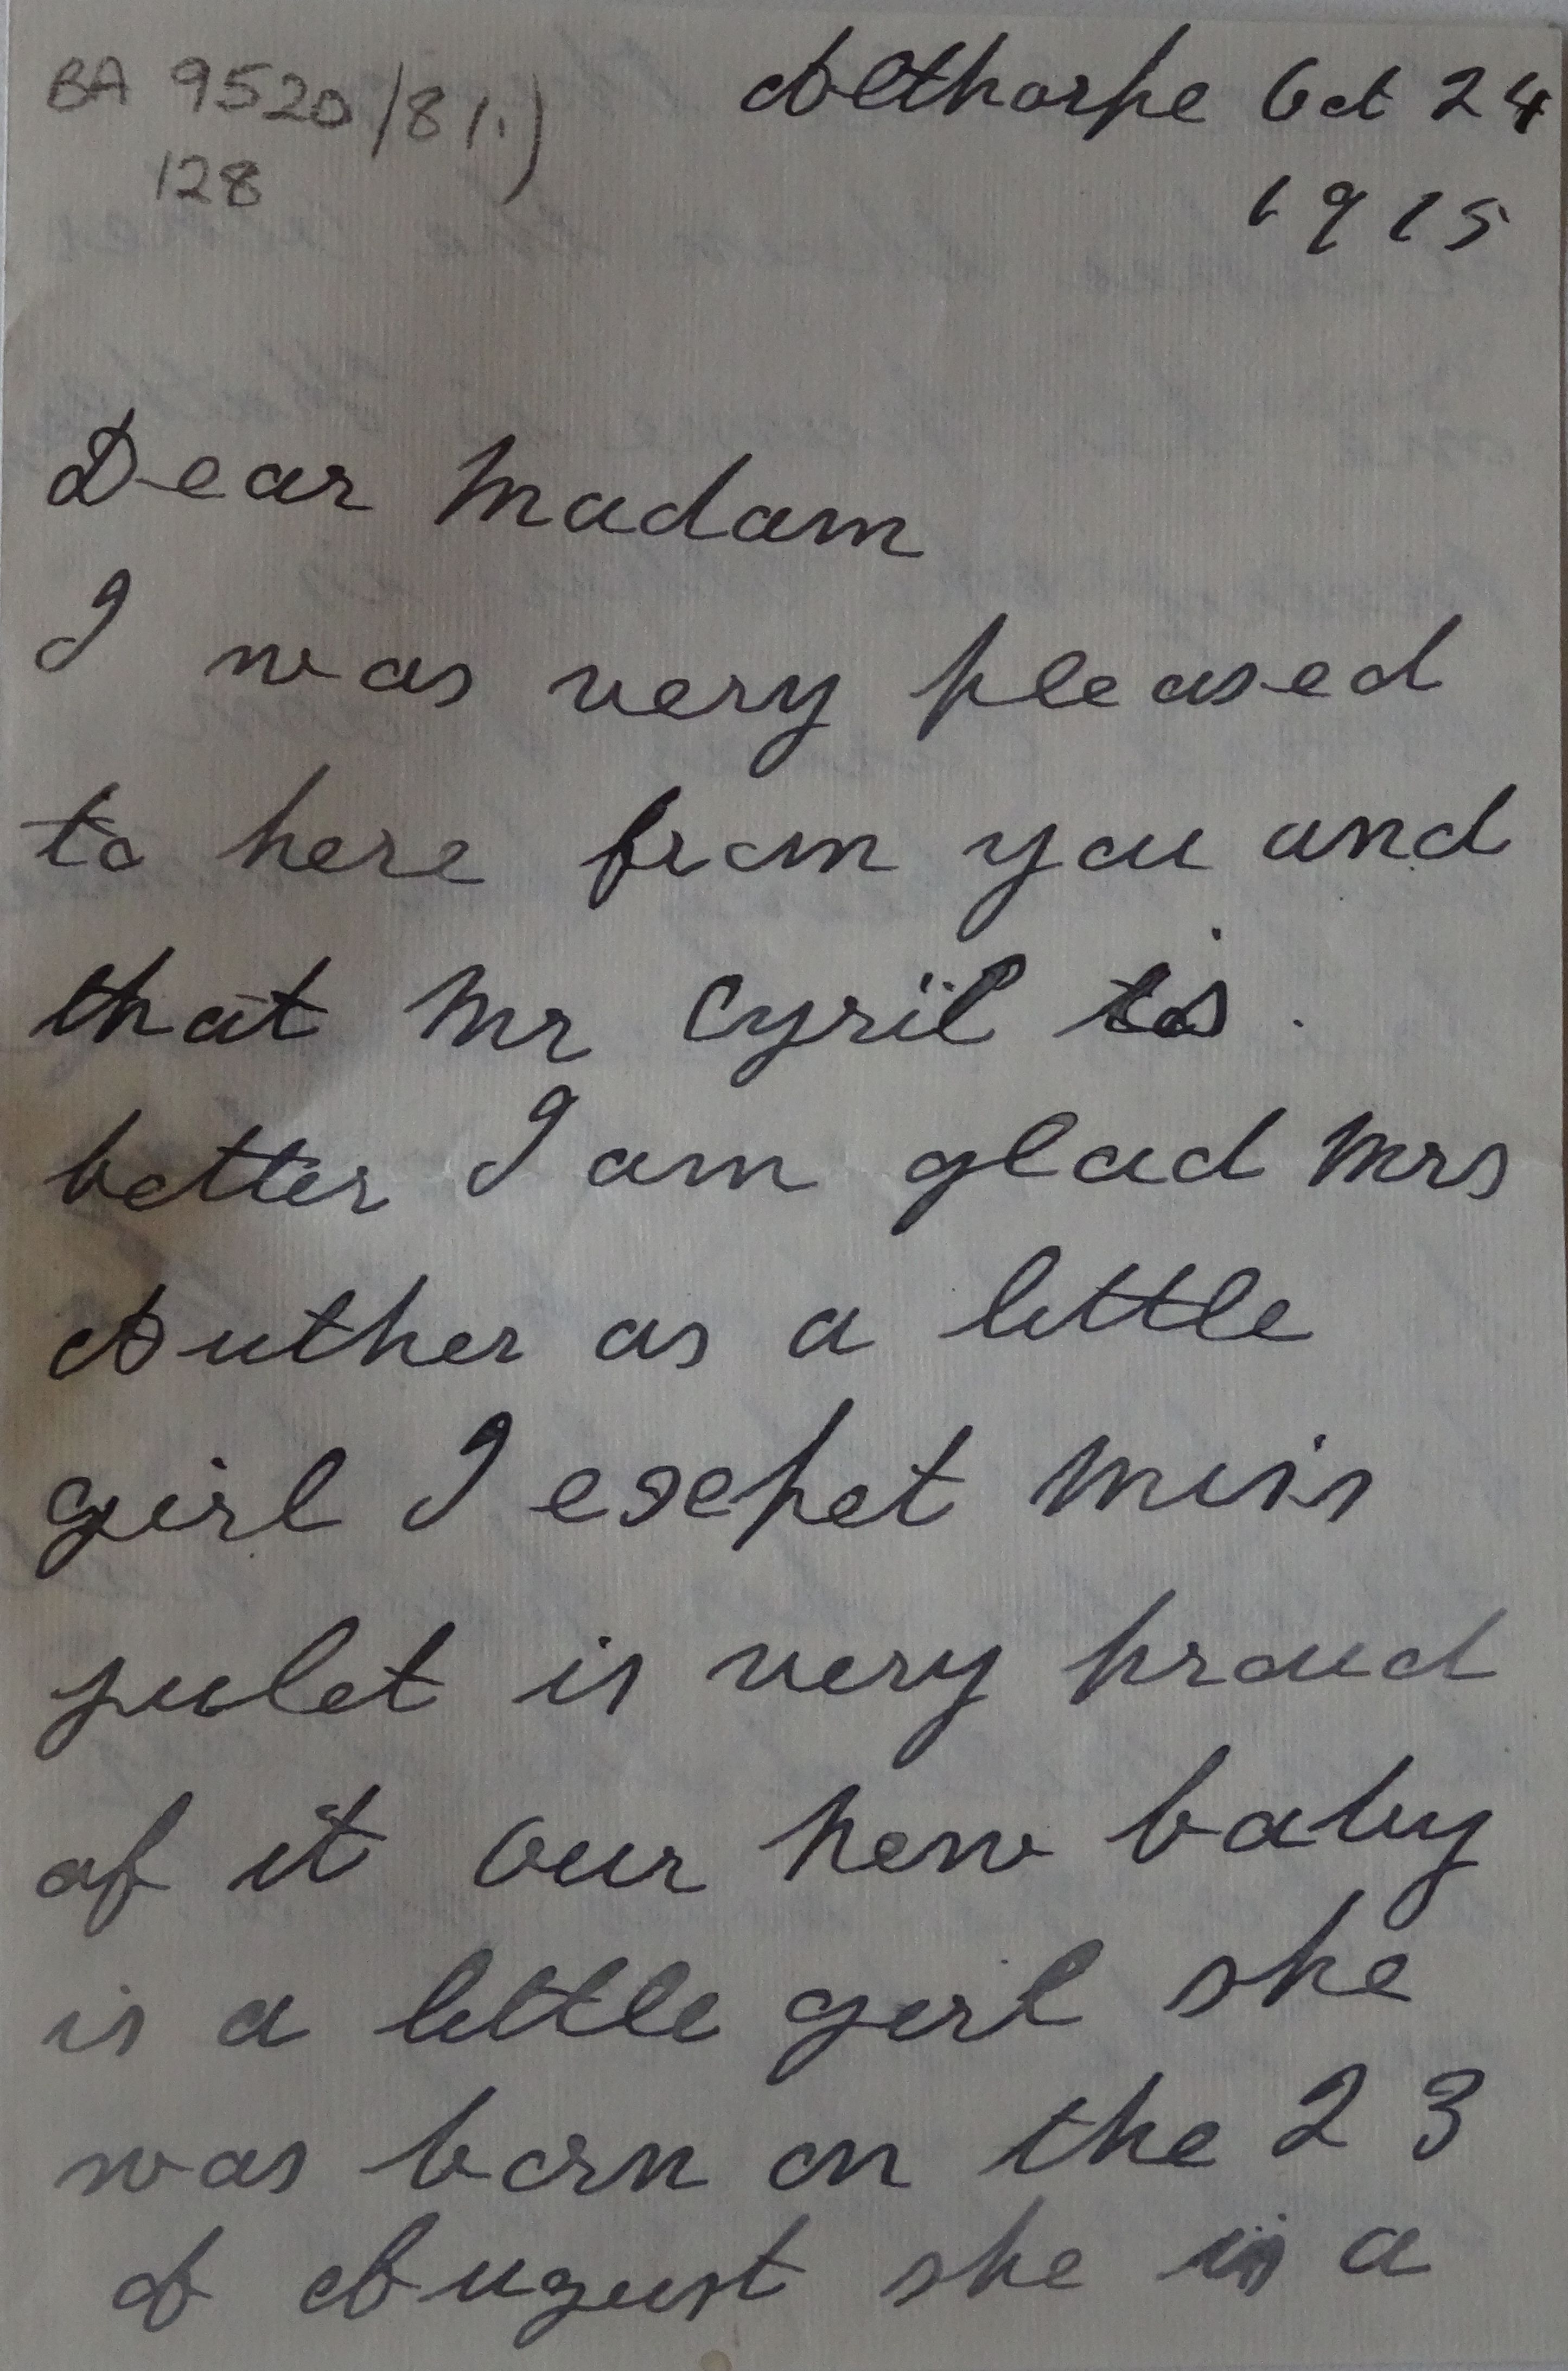 BA 9520/8 1.)
128
Althorpe Oct 24
1915
Dear Madam
I was very pleased
to here from you and
that Mr Cyril is
better I am glad Mrs
Auther as a little
girl I exepet Miss
julet is very proud
of it Our new baby
is a little girl she
was born on the 23
of August she is a